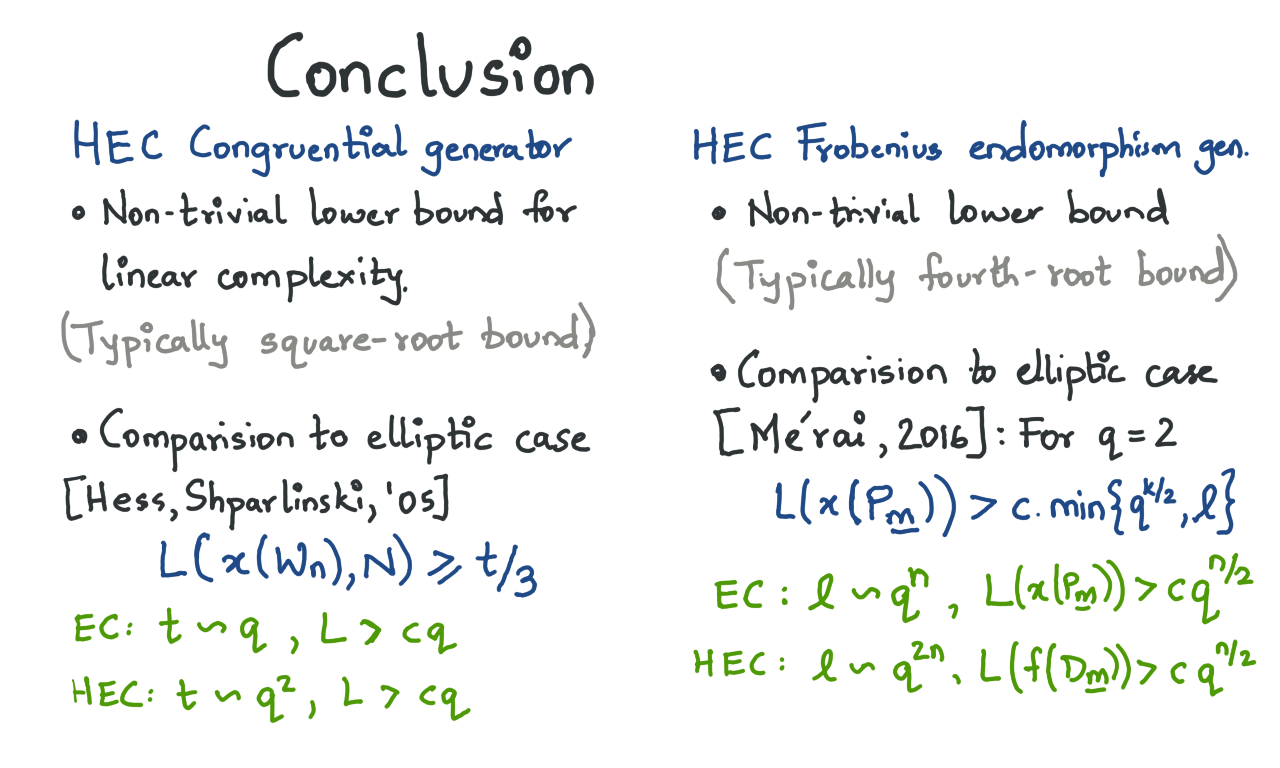 Conclusion
HEC Congruential generator
• Non-trivial lower bound for
linear complexity.
(Typically square-root bound)
• Comparision to elliptic case
[Hess, Shparlinski, '05]
L(x(Wn), N) ⩾ t/3
EC: t ∽ q , L > cq
HEC: t ∽ q², L > cq
HEC Frobenius endomorphism gen.
• Non-trivial lower bound
(Typically fourth-root bound)
• Comparision to elliptic case
[Mérai, 2016]: For q = 2
L(x(P_m)) > c. min{q^{k/2}, l}
EC: l ∽ q^n, L(x(P_m)) > cq^{n/2}
HEC: l ∽ q^{2n}, L(f(D_m)) > c q^{n/2}